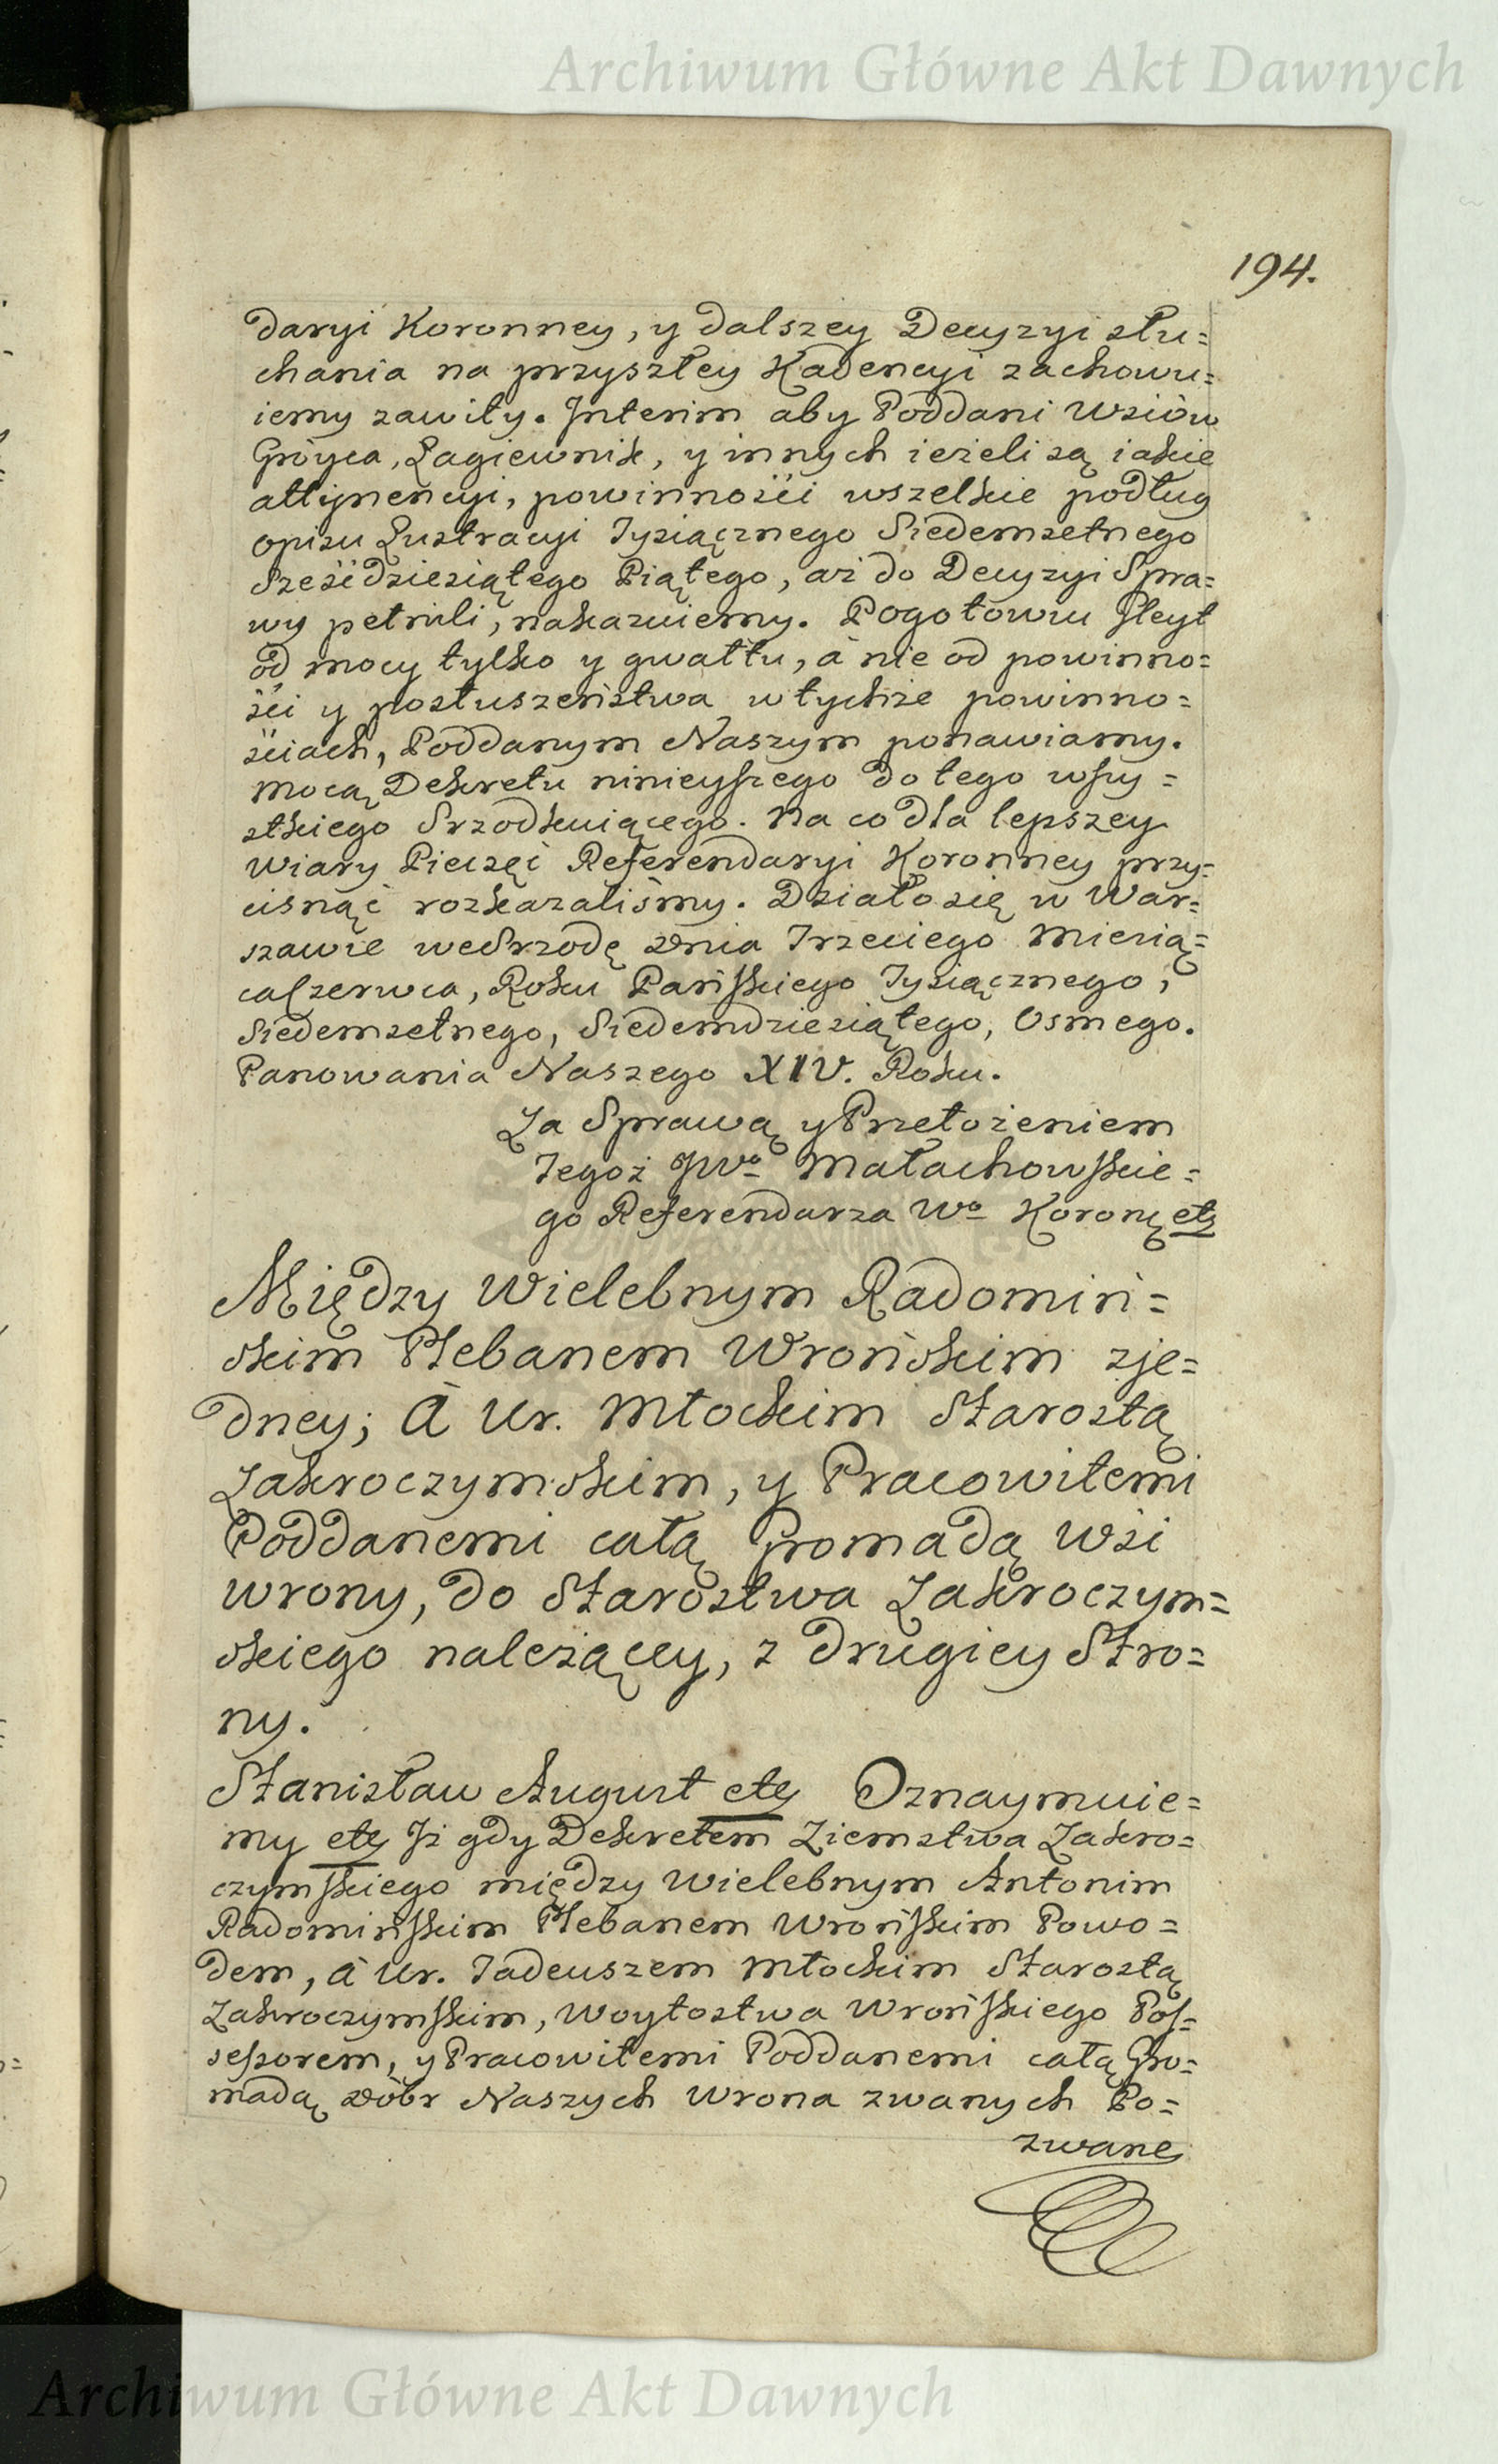 Archiwum Główne Akt Dawnych
194.
daryi Koronney, y dalszey Decyzyi słu=
chania na przyszłey Kadencyi zachowu=
iemy zawity. Interim aby Poddani Wsiów
Gróyca, Łagiewnik, y innych ieżeli są iakie
attynencyi, powinnośći wszelkie podług
opisu Lustracyi Tysiącznego Siedemsetnego
Sześćdziesiątego Piątego, aż do Decyzyi Spra=
wy pełnili, nakazuiemy. Pogotowiu Gleyt
od mocy tylko y gwałtu, á nie od powinno=
śći y posłuszeństwa w tychże powinno=
śćiach, Poddanym Naszym ponawiamy.
Mocą Dekretu ninieyszego do tego wszy=
stkiego Srzodkuiącego. Na co dla lepszey
wiary Pieczęć Referendaryi Koronney przy=
cisnąć rozkazaliśmy. Działo się w War=
szawie we Srzodę dnia Trzeciego Miesią=
ca Czerwca, Roku Pańskiego Tysiącznego,
Siedemsetnego, Siedemdziesiątego, Osmego.
Panowania Naszego XIV. Roku.
Za Sprawą y Przełożeniem
Tegoż JWo Małachowskie=
go Referendarza Wo Koronę etę
Między Wielebnym Radomiń=
skim Plebanem Wrońskim zje=
dney; á Ur. Młockim Starostą
Zakroczymskim, y Pracowitemi
Poddanemi całą Gromadą Wśi
Wrony, do Starostwa Zakroczym=
skiego należącey, z drugiey Stro=
ny.
Stanisław August etę Oznaymuie=
my etę Iż gdy Dekretem Ziemstwa Zakro=
czymskiego między Wielebnym Antonim
Radomińskim Plebanem Wrońskim Powo=
dem, á Ur. Tadeuszem Młockim Starostą
Zakroczymskim, Woytostwa Wrońskiego Pos=
sessorem, y Pracowitemi Poddanemi całą Gro=
madą dóbr Naszych Wrona zwanych Po=
zwane
Archiwum Główne Akt Dawnych